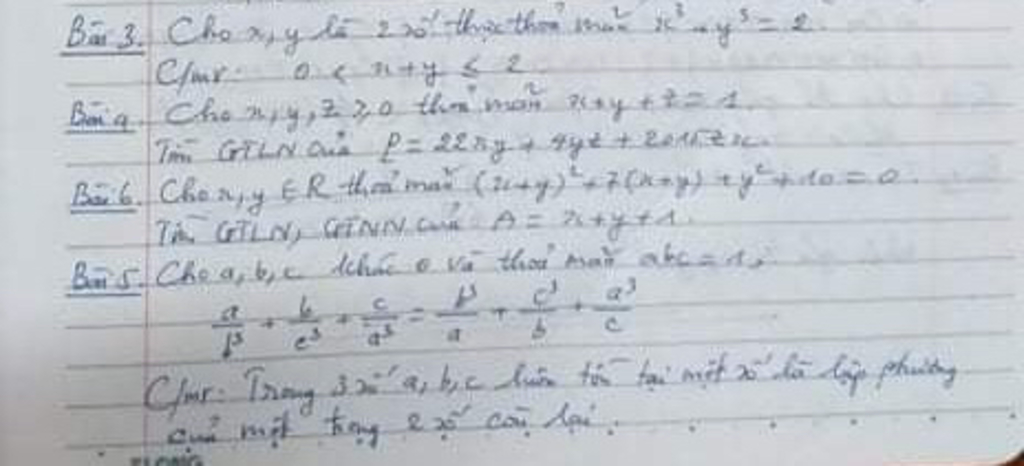 Bài 3. Cho x, y là 2 số thực thoả mãn x³ + y³ = 2.
C/mr: 0 < x+y ≤ 2
Bài 4. Cho x, y, z ≥ 0 thoả mãn x+y+z = 1.
Tìm GTLN của P = 22xy + 4yz + 2015zx.
Bài 6. Cho x, y ∈ R thoả mãn (x+y)² + 7(x+y) + y² + 10 = 0.
Tìm GTLN, GTNN của A = x+y+1.
Bài 5. Cho a, b, c khác 0 và thoả mãn abc = 1,
a/b³ + b/c³ + c/a³ = b³/a + c³/b + a³/c
C/mr: Trong 3 số a, b, c luôn tồn tại một số là lập phương
của một trong 2 số còn lại.